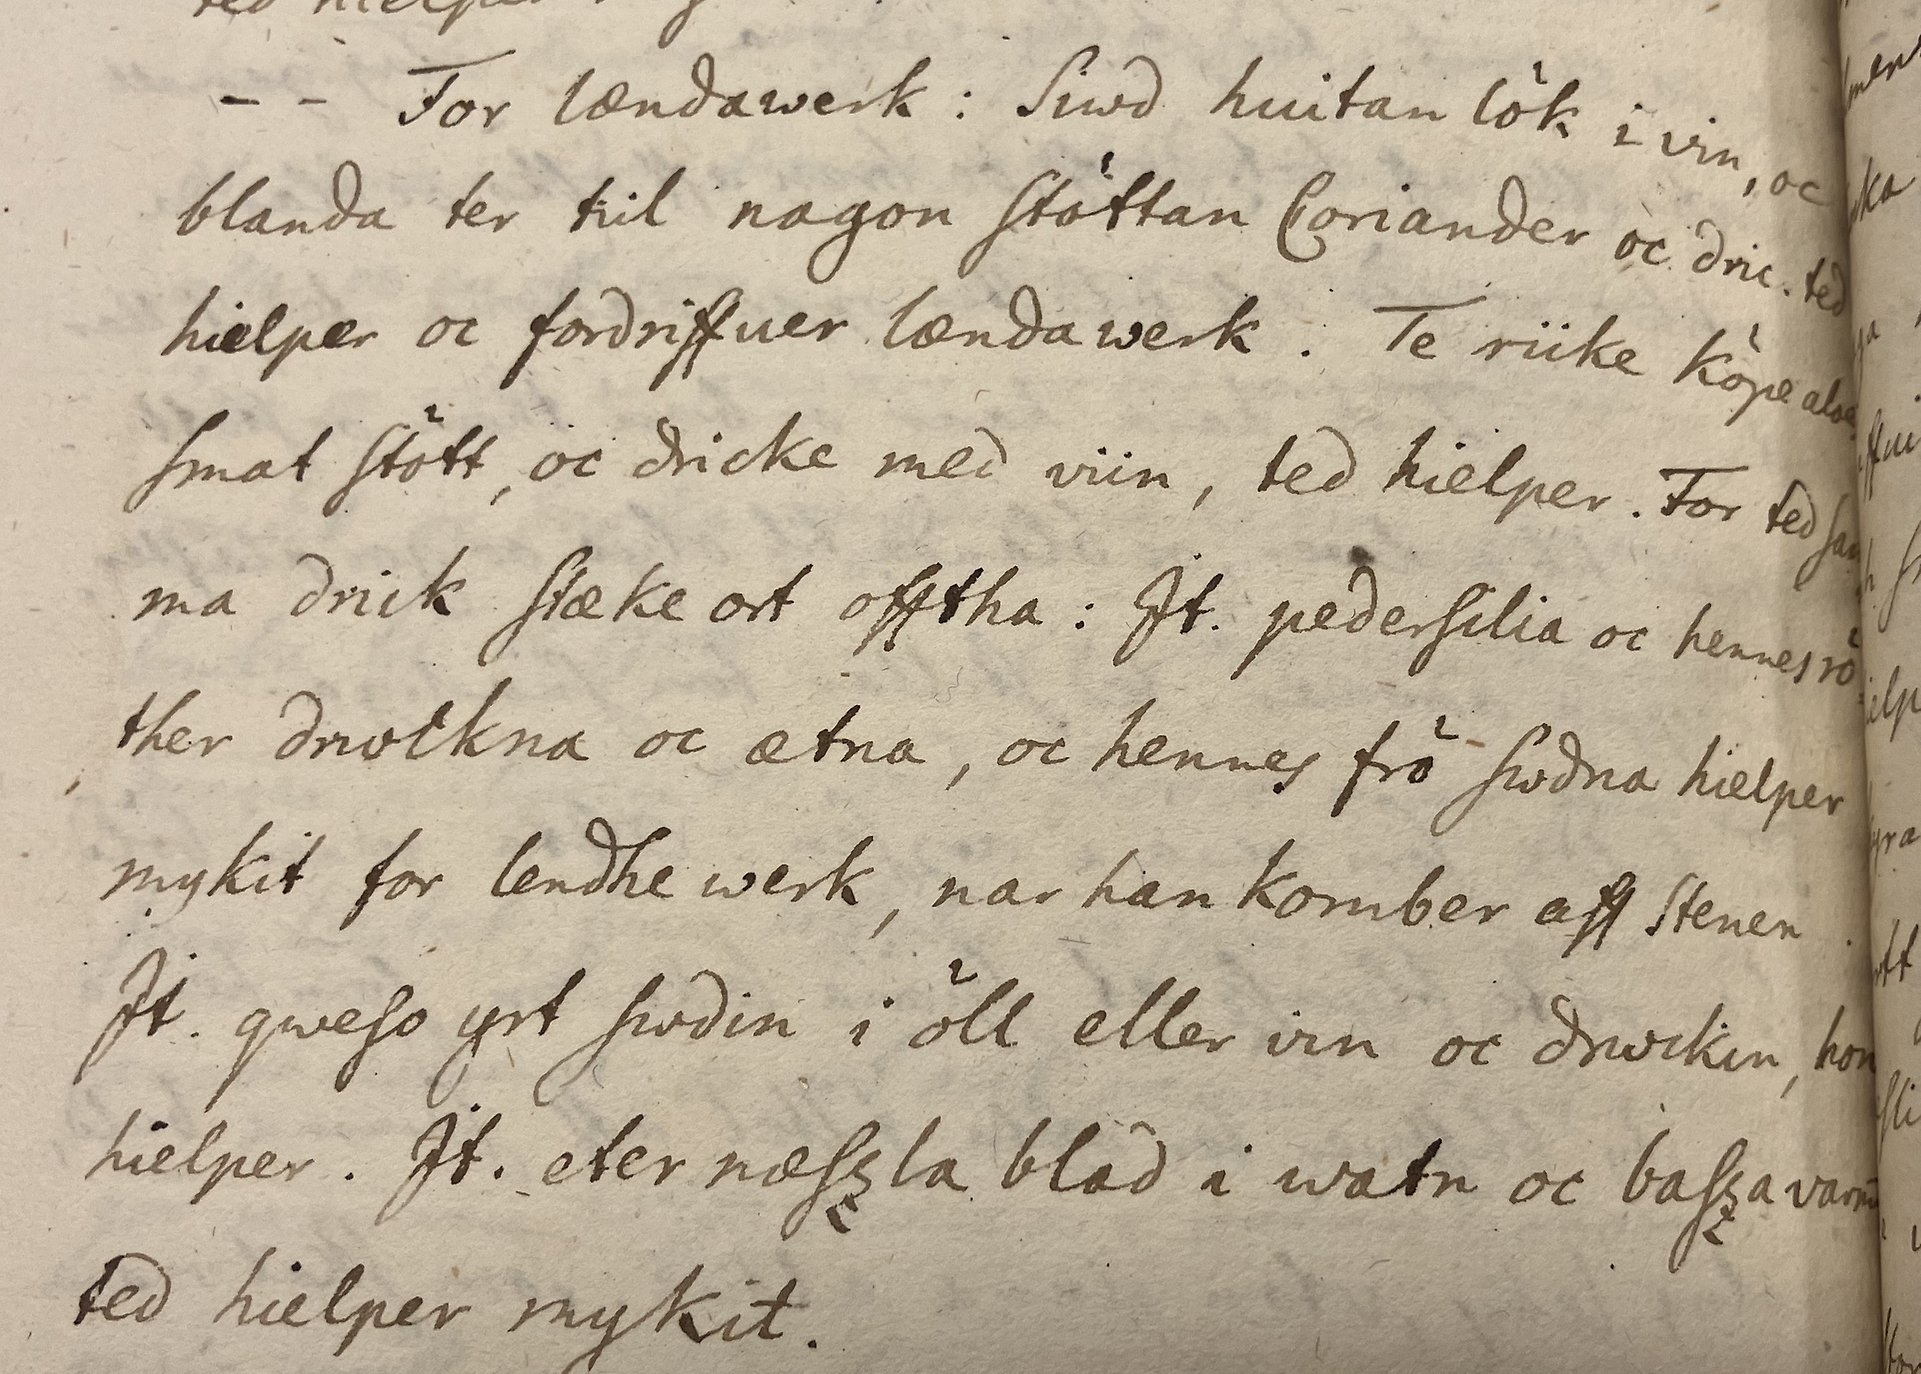 ted hielper
-- For lændawerk: Siwd huitan lök i vin, oc
blanda ter till nagon stöttan Coriander oc dric. ted
hielper oc fordriffuer lændawerk. Te riike köpe aloe,
smat stött, oc dricke med viin, ted hielper. For ted sam
ma drick stæke ort offtha: It. pedersilia oc hennes rö
ther drwckna oc ætna, oc hennes frö siwdna hielper
mykit for lendhe werk, nar han komber aff stenen.
It. qweso yrt siwdin i öll eller vin oc drwckin, hon
hielper. It. eter næszla blad i watn oc basza varm
ted hielper mykit.